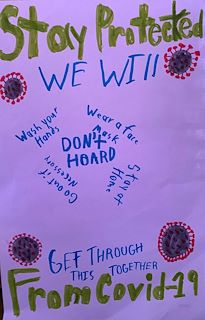 Stay Protected
WE WIll
Wash your
Hands
Wear a face
Mask
DON'T
HOARD
Stay at
Home
Go out if
Necessary
GET THROUGH
THIS TOGETHER
From Covid-19